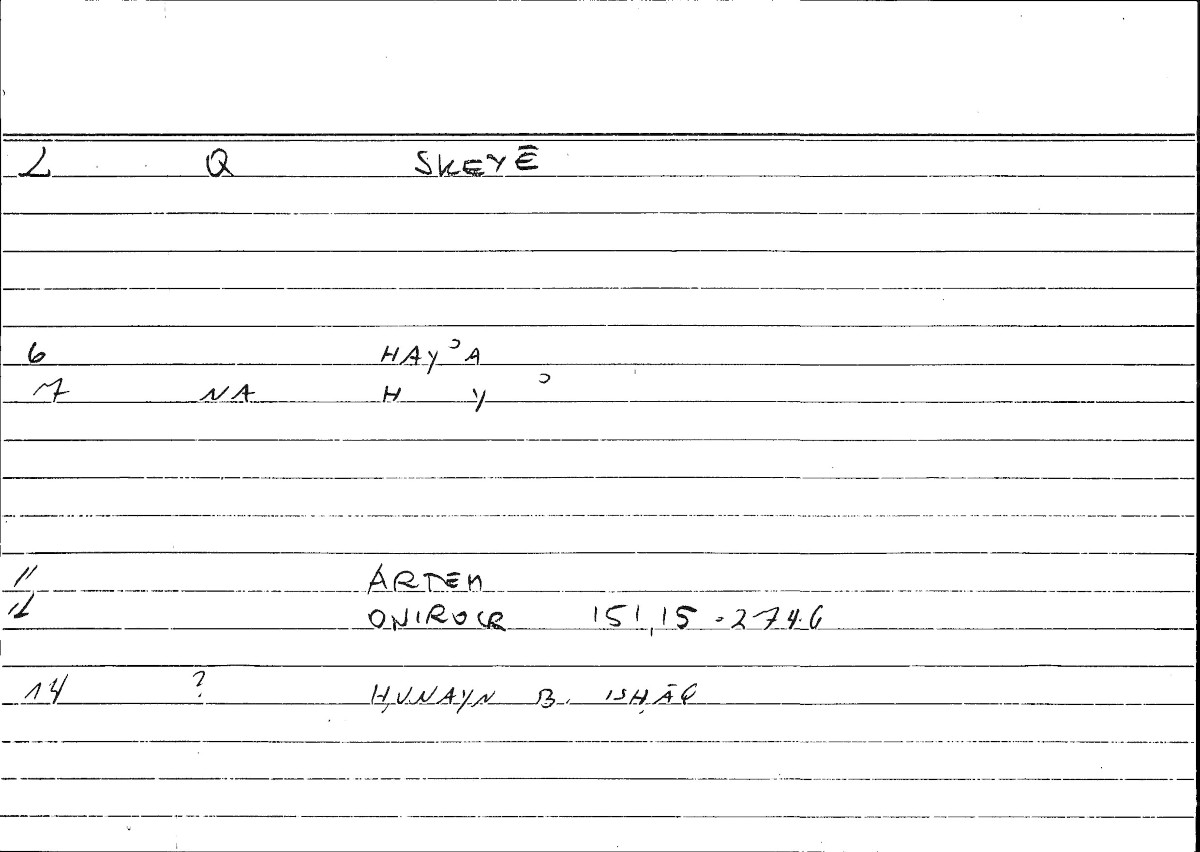 2 Q SKEYĒ
6 HAYʾA
7 NA H Y ʾ
11 ARTEM
12 ONIROCR 151,15 = 274.6
14 ? ḤUNAYN B. ISḤĀQ